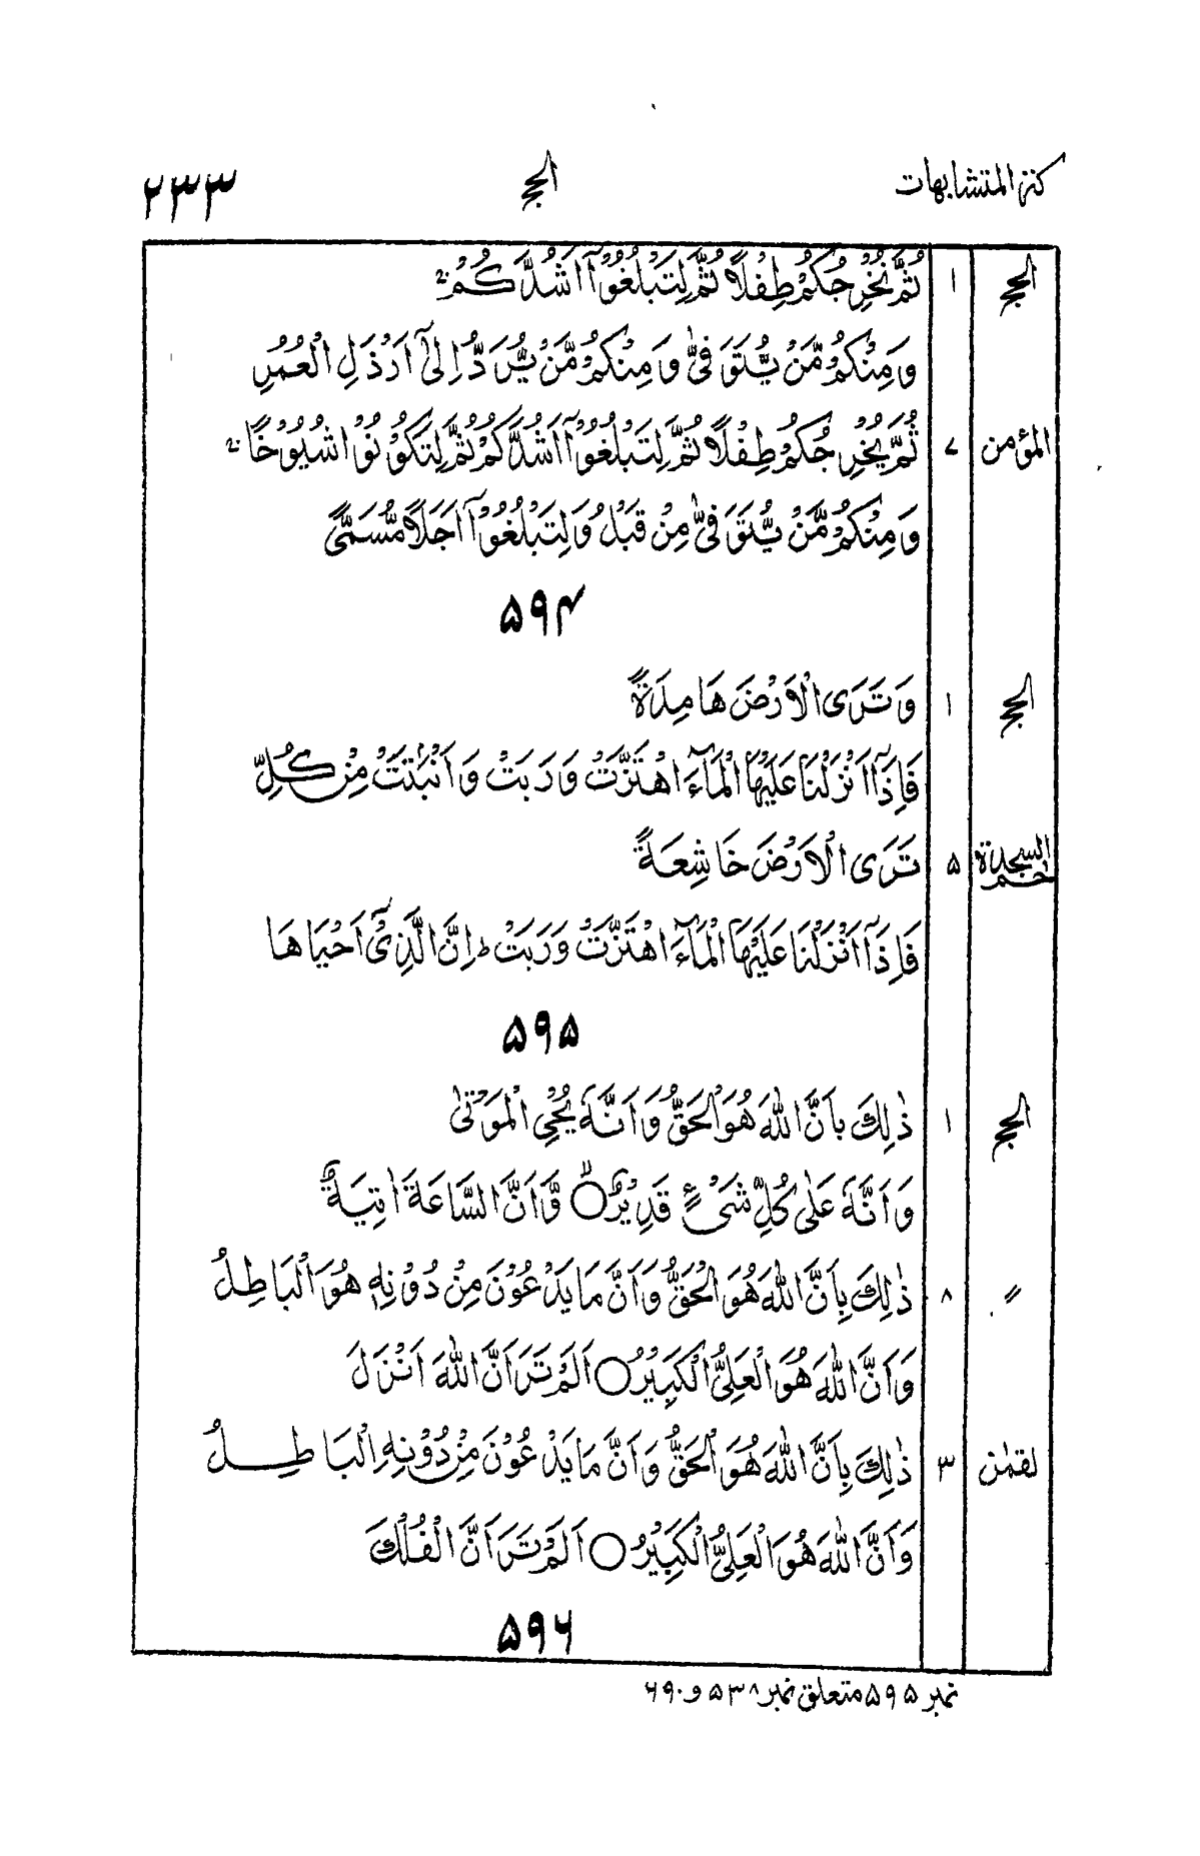 كنز المتشابهات الحج ۲۳۳
الحج ۱ ثُمَّ نُخْرِجُكُمْ طِفْلًا ثُمَّ لِتَبْلُغُوْٓا اَشُدَّكُمْ ۚ
وَمِنْكُمْ مَّنْ يُّتَوَفّٰى وَمِنْكُمْ مَّنْ يُّرَدُّ اِلٰٓى اَرْذَلِ الْعُمُرِ
المؤمن ۷ ثُمَّ يُخْرِجُكُمْ طِفْلًا ثُمَّ لِتَبْلُغُوْٓا اَشُدَّكُمْ ثُمَّ لِتَكُوْنُوْا شُيُوْخًا ۚ
وَمِنْكُمْ مَّنْ يُّتَوَفّٰى مِنْ قَبْلُ وَلِتَبْلُغُوْٓا اَجَلًا مُّسَمًّى
۵۹۴
الحج ۱ وَتَرَى الْاَرْضَ هَامِدَةً
فَاِذَآ اَنْزَلْنَا عَلَيْهَا الْمَآءَ اهْتَزَّتْ وَرَبَتْ وَاَنْۢبَتَتْ مِنْ كُلِّ
حٰم السجدة ۵ تَرَى الْاَرْضَ خَاشِعَةً
فَاِذَآ اَنْزَلْنَا عَلَيْهَا الْمَآءَ اهْتَزَّتْ وَرَبَتْ ؕ اِنَّ الَّذِيْٓ اَحْيَاهَا
۵۹۵
الحج ۱ ذٰلِكَ بِاَنَّ اللّٰهَ هُوَ الْحَقُّ وَاَنَّهٗ يُحْيِ الْمَوْتٰى
وَاَنَّهٗ عَلٰى كُلِّ شَيْءٍ قَدِيْرٌ ○ۙ وَّاَنَّ السَّاعَةَ اٰتِيَةٌ
〃 ۸ ذٰلِكَ بِاَنَّ اللّٰهَ هُوَ الْحَقُّ وَاَنَّ مَا يَدْعُوْنَ مِنْ دُوْنِهٖ هُوَ الْبَاطِلُ
وَاَنَّ اللّٰهَ هُوَ الْعَلِيُّ الْكَبِيْرُ ○ اَلَمْ تَرَ اَنَّ اللّٰهَ اَنْزَلَ
لقمٰن ۳ ذٰلِكَ بِاَنَّ اللّٰهَ هُوَ الْحَقُّ وَاَنَّ مَا يَدْعُوْنَ مِنْ دُوْنِهِ الْبَاطِلُ
وَاَنَّ اللّٰهَ هُوَ الْعَلِيُّ الْكَبِيْرُ ○ اَلَمْ تَرَ اَنَّ الْفُلْكَ
۵۹۶
نمبر ۵۹۵ متعلق نمبر ۵۳۸ و ۶۹۰